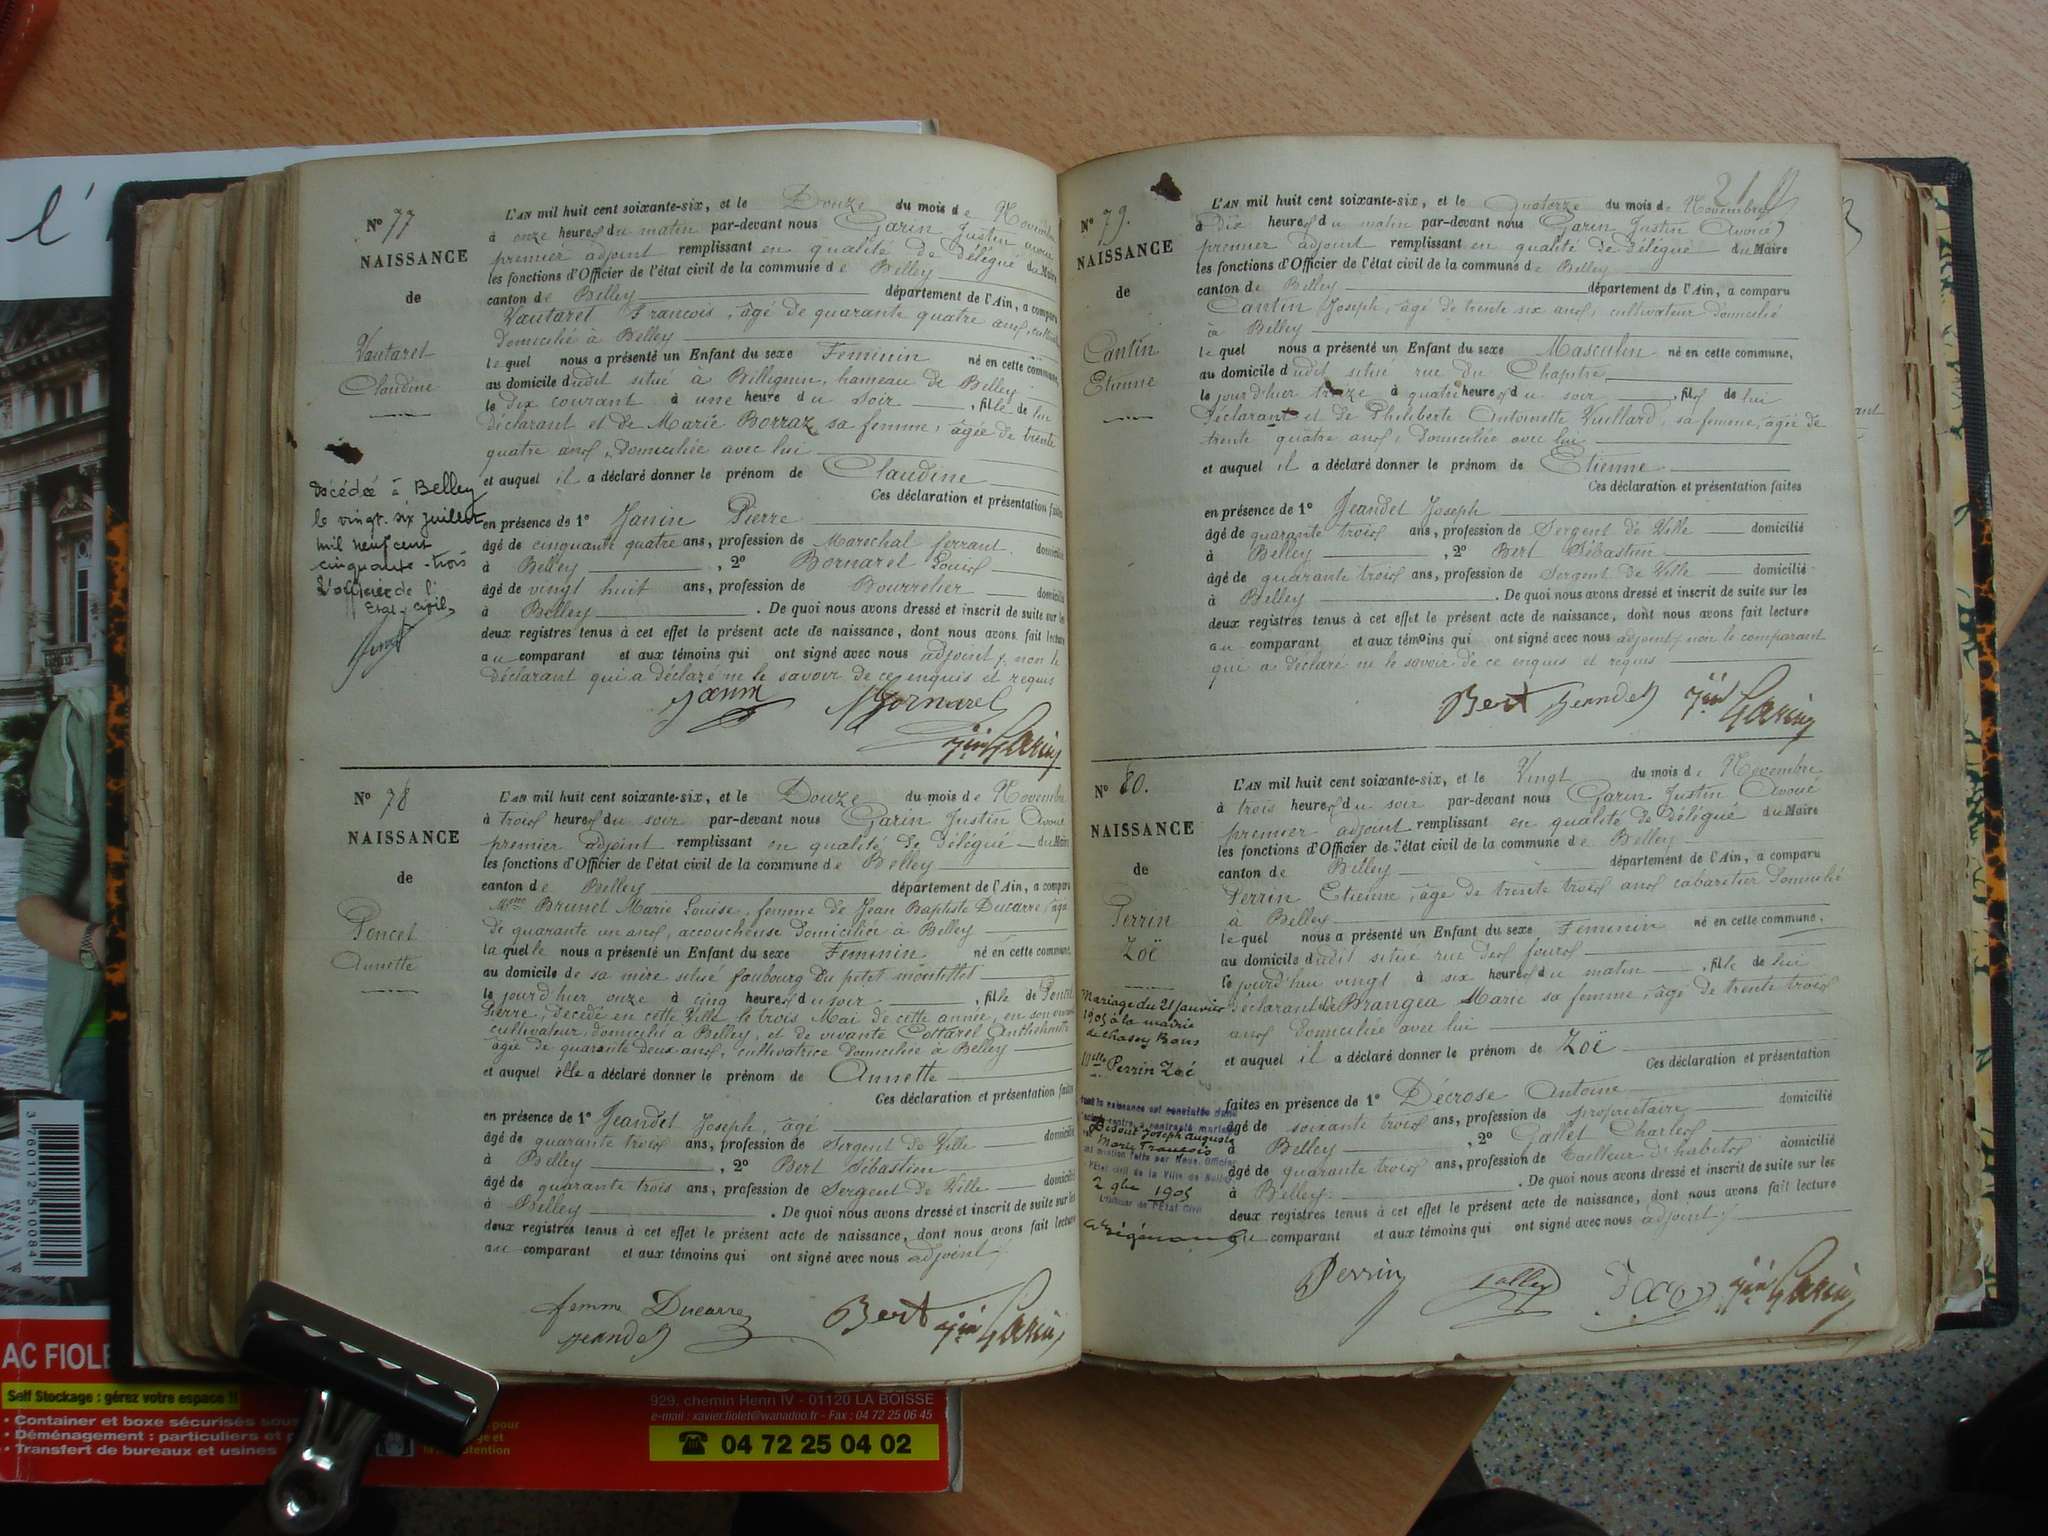 N° 77
NAISSANCE
de
Vautaret
Claudine
Décédée à Belley
le vingt-six juillet
mil neuf cent
cinquante-trois
L'officier de l'
Etat civil,
L'AN mil huit cent soixante-six, et le Douze du mois de Novembre
à onze heures du matin par-devant nous Garin Justin avoué
premier adjoint remplissant en qualité de délégué du Maire
les fonctions d'Officier de l'état civil de la commune de Belley
canton de Belley département de l'Ain, a comparu
Vautaret François, âgé de quarante quatre ans,
domicilié à Belley
lequel nous a présenté un Enfant du sexe Feminin né en cette commune,
au domicile dudit situé à Billignin, hameau de Belley
le dix courant à une heure du soir, fille de lui
déclarant et de Marie Borraz sa femme, âgée de trente
quatre ans, domiciliée avec lui
et auquel il a déclaré donner le prénom de Claudine
Ces déclaration et présentation faites
en présence de 1° Janin Pierre
âgé de cinquante quatre ans, profession de Maréchal ferrant domicilié
à Belley, 2° Bornarel Louis
âgé de vingt huit ans, profession de Bourrelier domicilié
à Belley. De quoi nous avons dressé et inscrit de suite sur les
deux registres tenus à cet effet le présent acte de naissance, dont nous avons fait lecture
au comparant et aux témoins qui ont signé avec nous adjoint, non le
déclarant qui a déclaré ne le savoir de ce enquis et requis
Janin Bornarel
Jin Garin
N° 78
NAISSANCE
de
Poncet
Annette
L'AN mil huit cent soixante-six, et le Douze du mois de Novembre
à trois heures du soir par-devant nous Garin Justin Avoué
premier adjoint remplissant en qualité de délégué du Maire
les fonctions d'Officier de l'état civil de la commune de Belley
canton de Belley département de l'Ain, a comparu
Mme Brunet Marie Louise, femme de Jean Baptiste Ducarre, âgée
de quarante un ans, accoucheuse domiciliée à Belley
laquelle nous a présenté un Enfant du sexe Feminin né en cette commune,
au domicile de sa mère situé faubourg du petit
le jourd'hier onze à cinq heures du soir, fille de Poncet
Pierre, décédé en cette Ville le trois Mai de cette année, en son vivant
cultivateur domicilié à Belley, et de vivante Cottarel Anthelmette
âgée de quarante deux ans, cultivatrice domiciliée à Belley
et auquel elle a déclaré donner le prénom de Annette
Ces déclaration et présentation faites
en présence de 1° Jeandet Joseph, âgé
âgé de quarante trois ans, profession de Sergent de Ville domicilié
à Belley, 2° Bert Sébastien
âgé de quarante trois ans, profession de Sergent de Ville domicilié
à Belley. De quoi nous avons dressé et inscrit de suite sur les
deux registres tenus à cet effet le présent acte de naissance, dont nous avons fait lecture
au comparant et aux témoins qui ont signé avec nous adjoint
femme Ducarre Bert Jin Garin
Jeandet
N° 79.
NAISSANCE
de
Cantin
Etienne
L'AN mil huit cent soixante-six, et le Quatorze du mois de Novembre
à Dix heures du matin par-devant nous Garin Justin Avoué
premier adjoint remplissant en qualité de délégué du Maire
les fonctions d'Officier de l'état civil de la commune de Belley
canton de Belley département de l'Ain, a comparu
Cantin Joseph, âgé de trente six ans, cultivateur domicilié
à Belley
lequel nous a présenté un Enfant du sexe Masculin né en cette commune,
au domicile dudit situé rue du Chapitre
le jourd'hier treize à quatre heures du soir, fils de lui
déclarant et de Philiberte Antoinette Vuillard, sa femme, âgée de
trente quatre ans, domiciliée avec lui
et auquel il a déclaré donner le prénom de Etienne
Ces déclaration et présentation faites
en présence de 1° Jeandet Joseph
âgé de quarante trois ans, profession de Sergent de Ville domicilié
à Belley, 2° Bert Sébastien
âgé de quarante trois ans, profession de Sergent de Ville domicilié
à Belley. De quoi nous avons dressé et inscrit de suite sur les
deux registres tenus à cet effet le présent acte de naissance, dont nous avons fait lecture
au comparant et aux témoins qui ont signé avec nous adjoint, non le comparant
qui a déclaré ne le savoir de ce enquis et requis
Bert Jeandet Jin Garin
N° 80.
NAISSANCE
de
Perrin
Zoë
Mariage du 21 Janvier
1905 à la mairie
de Chasey Bons
Perrin Zoé
Bisout Joseph Auguste
Marie François
2 9bre 1905
L'Officier de l'Etat Civil
L'AN mil huit cent soixante-six, et le Vingt du mois de Novembre
à trois heures du soir par-devant nous Garin Justin Avoué
premier adjoint remplissant en qualité de délégué du Maire
les fonctions d'Officier de l'état civil de la commune de Belley
canton de Belley département de l'Ain, a comparu
Perrin Etienne, âgé de trente trois ans cabaretier domicilié
à Belley
lequel nous a présenté un Enfant du sexe Feminin né en cette commune,
au domicile dudit situé rue des fours
le jourd'hui vingt à six heures du matin, fille de lui
déclarant de Brangea Marie sa femme, âgé de trente trois
ans domiciliée avec lui
et auquel il a déclaré donner le prénom de Zoë
Ces déclaration et présentation
faites en présence de 1° Décrose Antoine
âgé de soixante trois ans, profession de propriétaire domicilié
à Belley, 2° Gallet Charles
âgé de quarante trois ans, profession de tailleur d'habits domicilié
à Belley. De quoi nous avons dressé et inscrit de suite sur les
deux registres tenus à cet effet le présent acte de naissance, dont nous avons fait lecture
au comparant et aux témoins qui ont signé avec nous adjoint
Perrin Gallet Jin Garin
l'
3760112510084
AC FIOLE
Self Stockage : gérez votre espace !!
• Container et boxe sécurisés sous
• Déménagement : particuliers et
• Transfert de bureaux et usines
929, chemin Henri IV - 01120 LA BOISSE
e-mail : xavier.fiolet@wanadoo.fr - Fax : 04 72 25 06 45
☎ 04 72 25 04 02